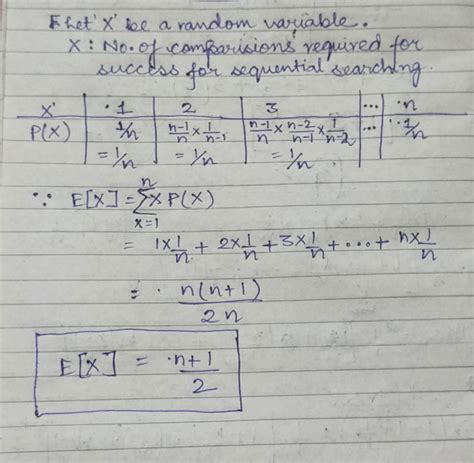 Let 'X' be a random variable.
X : No. of comparisions required for
success for sequential searching.
X 1 2 3 ... n
P(X) 1/n n-1/n × 1/n-1 n-1/n × n-2/n-1 × 1/n-2 ... 1/n
= 1/n = 1/n = 1/n
∵ E[X] = n∑x=1 X P(X)
= 1×1/n + 2×1/n + 3×1/n + ... + n×1/n
= n(n+1)/2n
E[X] = n+1/2